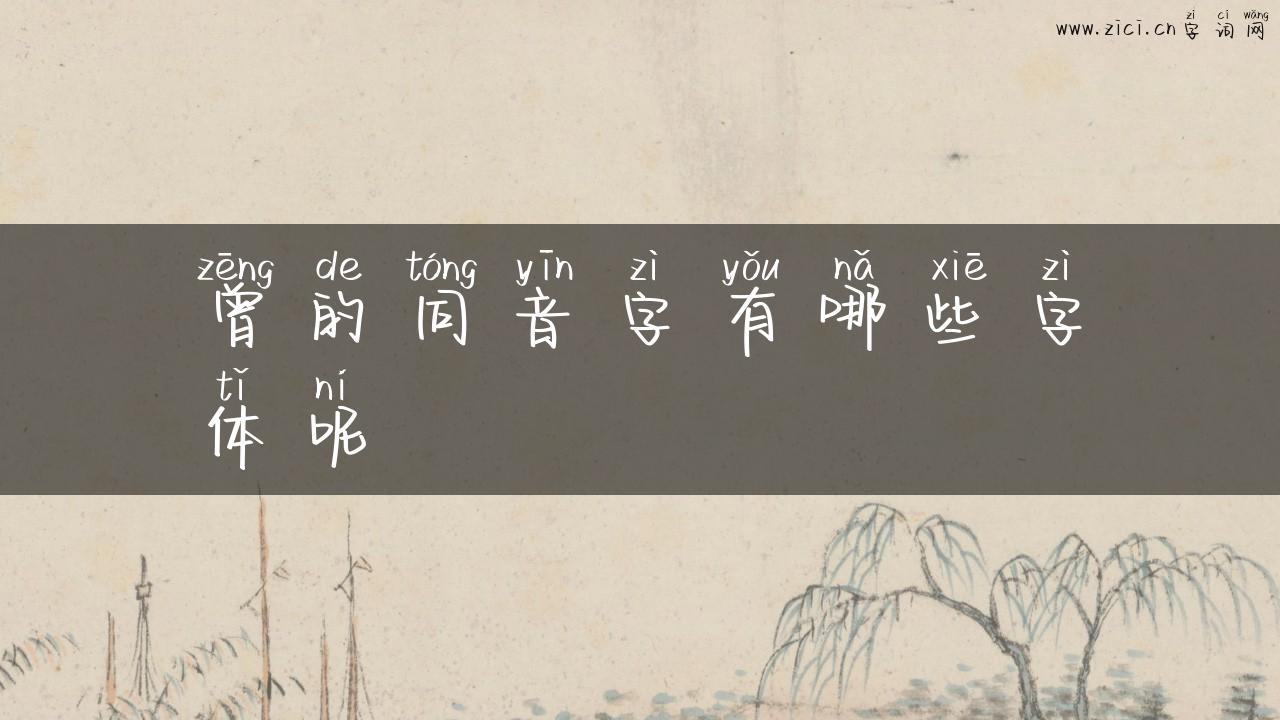 zì cí wǎng
www.zici.cn 字词网
zēng de tóng yīn zì yǒu nǎ xiē zì
曾的同音字有哪些字
tǐ ní
体呢